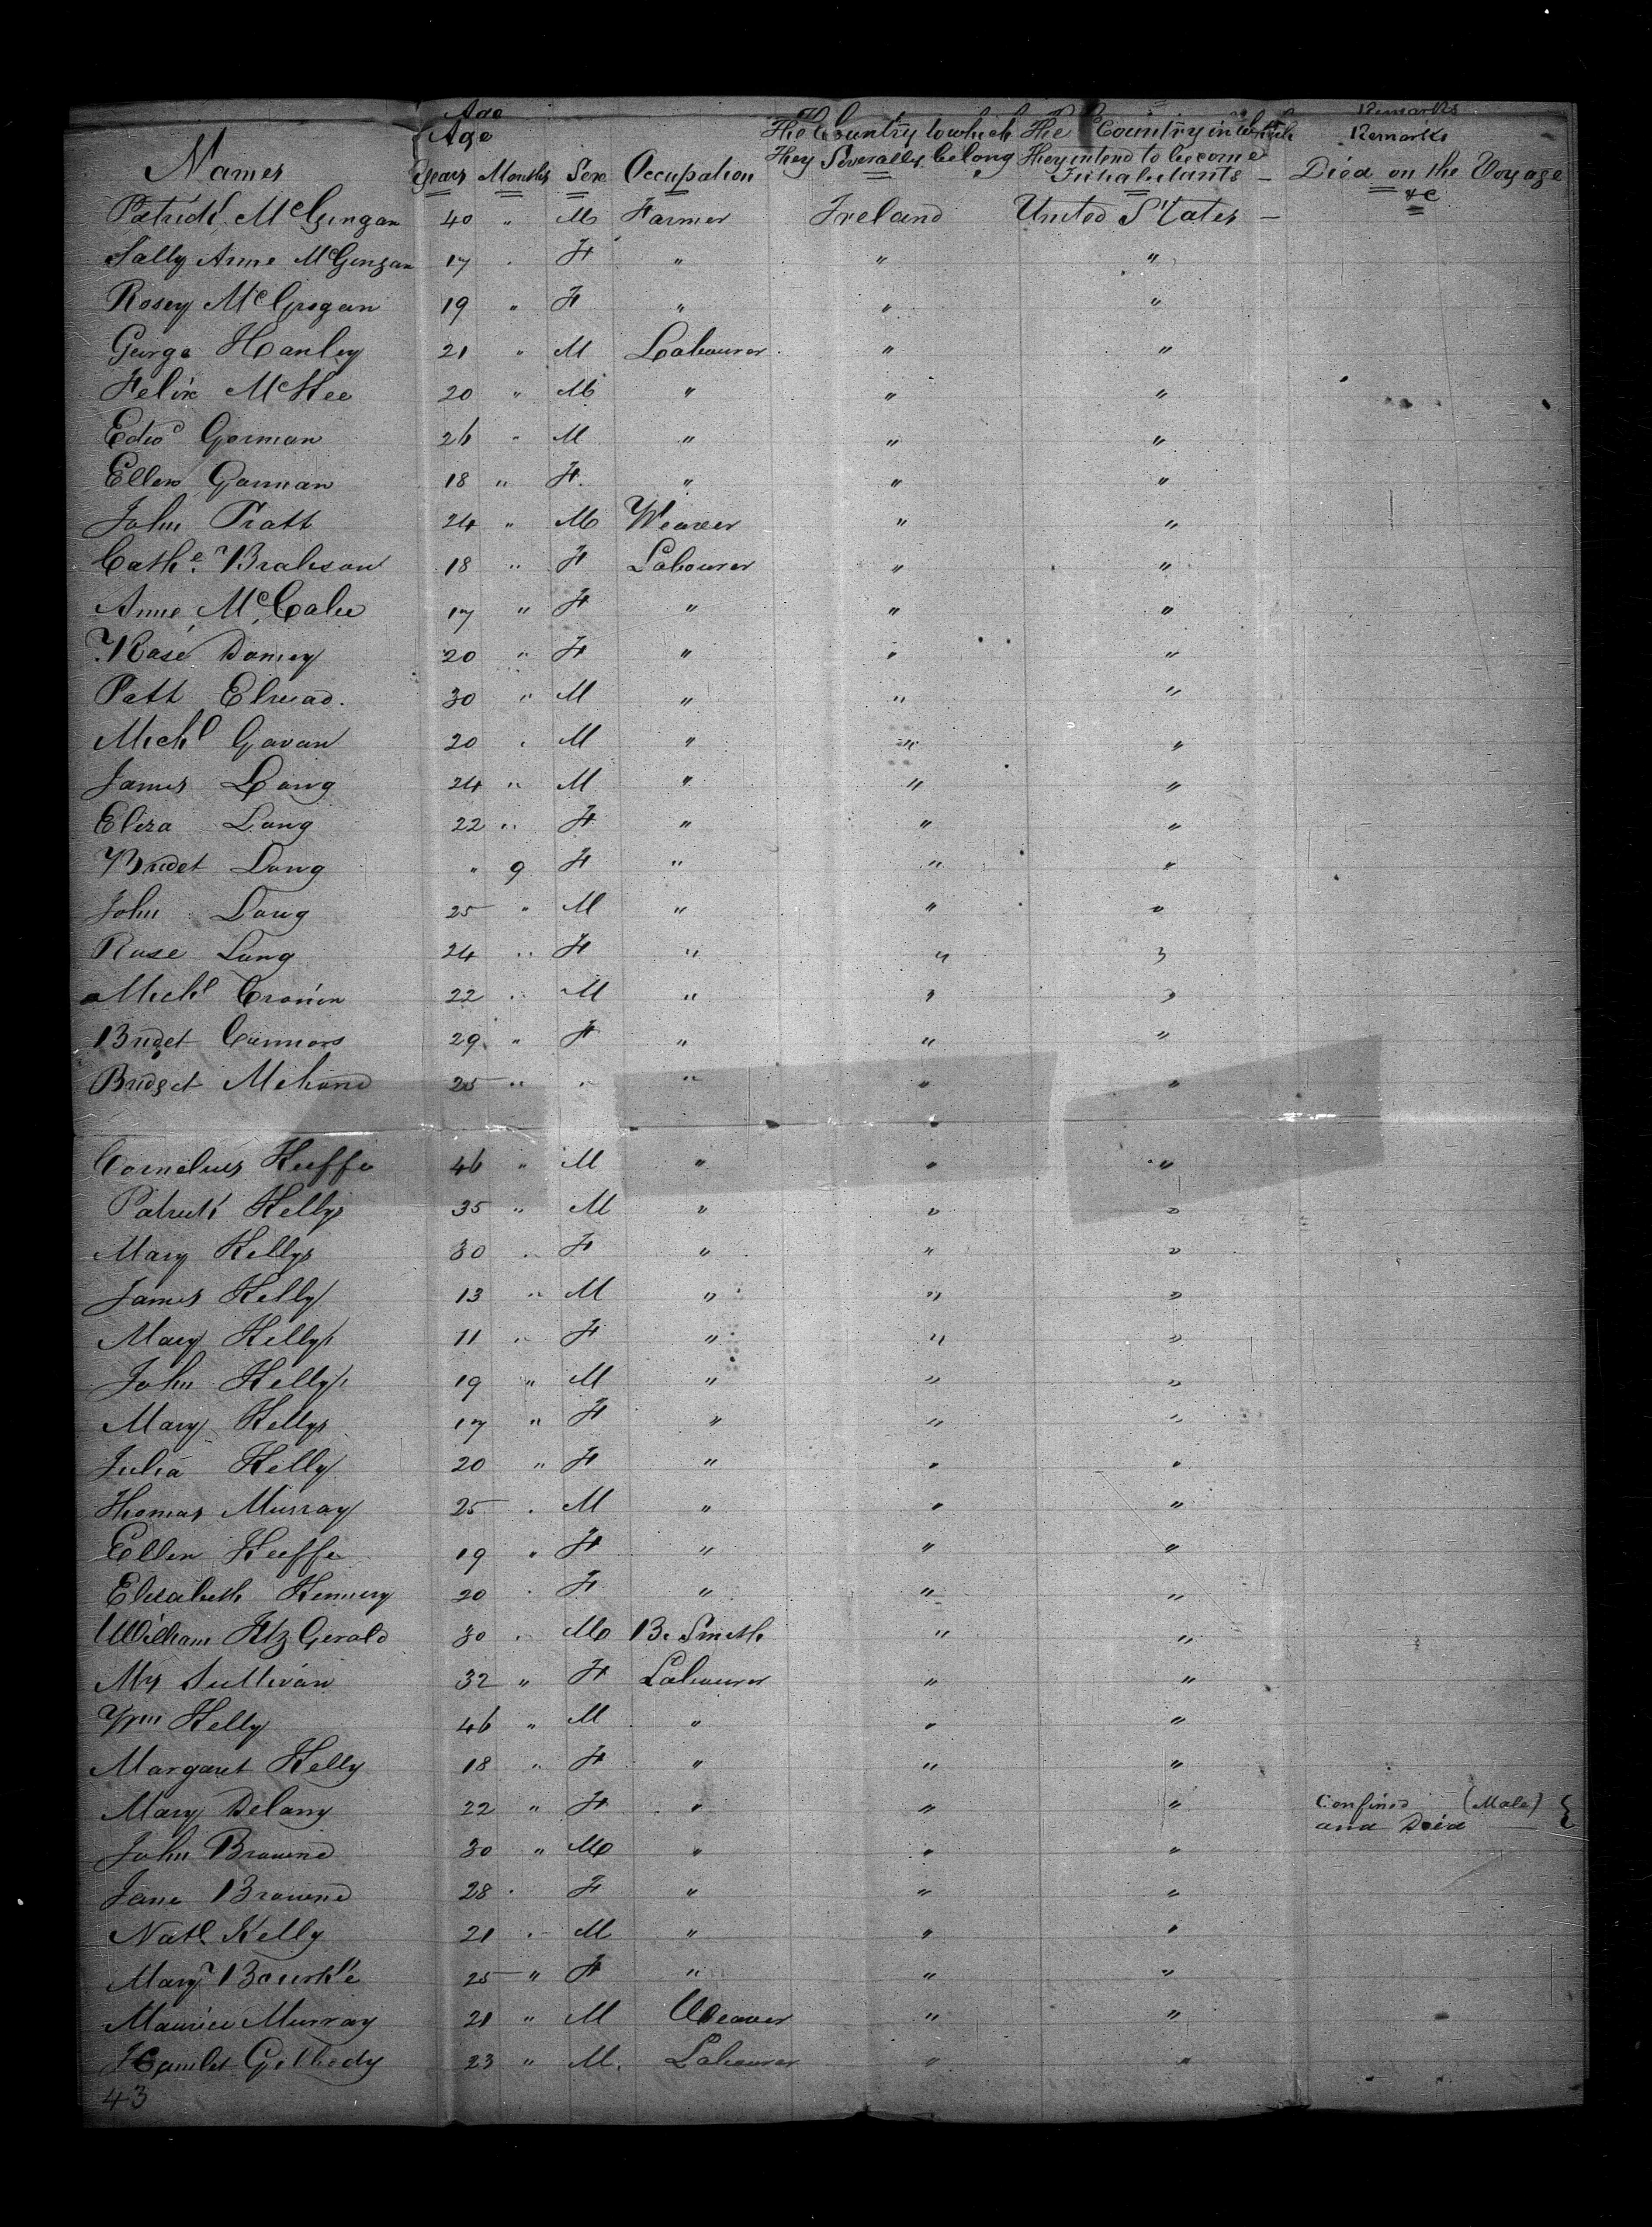 Age
Remarks
Names Age The Country to which The Country in which Remarks
Years Months Sex Occupation They Severally belong They intend to become Inhabitants — Died on the Voyage &c
Patrick McGungan 40 " M Farmer Ireland United States —
Sally Anne McGungan 17 " F " " "
Rosey McGrogan 19 " F " " "
George Hanley 21 " M Labourer " "
Felix McKee 20 " M " " "
Edwd Gorman 26 " M " " "
Ellen Gorman 18 " F " " "
John Pratt 24 " M Weaver " "
Cathe. Brabson 18 " F Labourer " "
Anne McCabe 17 " F " " "
Rose 20 " F " " "
Patt 30 " M " " "
Michl Gavan 20 " M " " "
James Lang 24 " M " " "
Eliza Lang 22 " F " " "
Bridet Lang " 9 F " " "
John Lang 25 " M " " "
Rose Lang 24 " F " " "
Michl Cronin 22 " M " " "
Bridget Connors 29 " F " " "
Bridget 25 " " " " "
Cornelius Keeffe 46 " M " " "
Patrick Kelly 35 " M " " "
Mary Kelly 30 " F " " "
James Kelly 13 " M " " "
Mary Kelly 11 " F " " "
John Kelly 19 " M " " "
Mary Kelly 17 " F " " "
Julia Kelly 20 " F " " "
Thomas Murray 25 " M " " "
Ellen Keeffe 19 " F " " "
Elizabeth 20 " F " " "
William FitzGerald 30 " M B. Smith " "
Mrs Sullivan 32 " F Labourer " "
Wm Kelly 46 " M " " "
Margaret Kelly 18 " F " " "
Mary Delany 22 " F " " " Confined (Male)
and Died
John Browne 30 " M " " "
Jane Browne 28 " F " " "
Natl Kelly 21 " M " " "
Mary Bourke 25 " F " " "
Maurice Murray 21 " M Weaver " "
Hamlet Gilbody 23 " M. Labourer " "
43